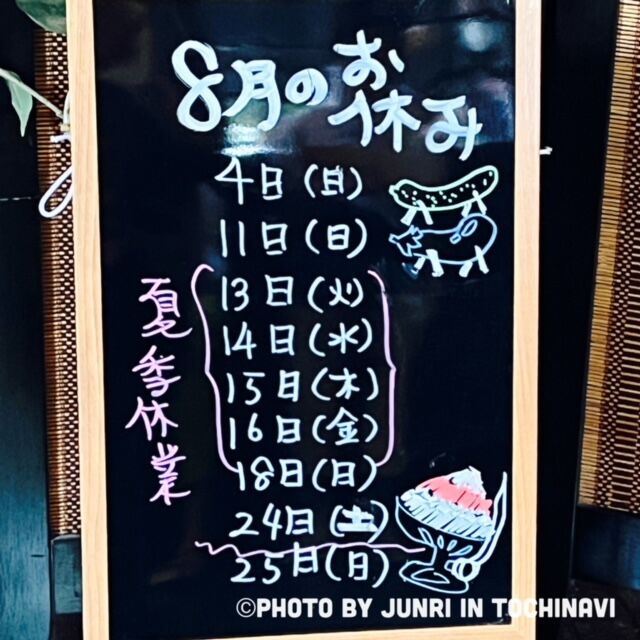 8月のお休み
4日(日)
11日(日)
夏季休業
13日(火)
14日(水)
15日(木)
16日(金)
18日(日)
24日(土)
25日(日)
©PHOTO BY JUNRI IN TOCHINAVI